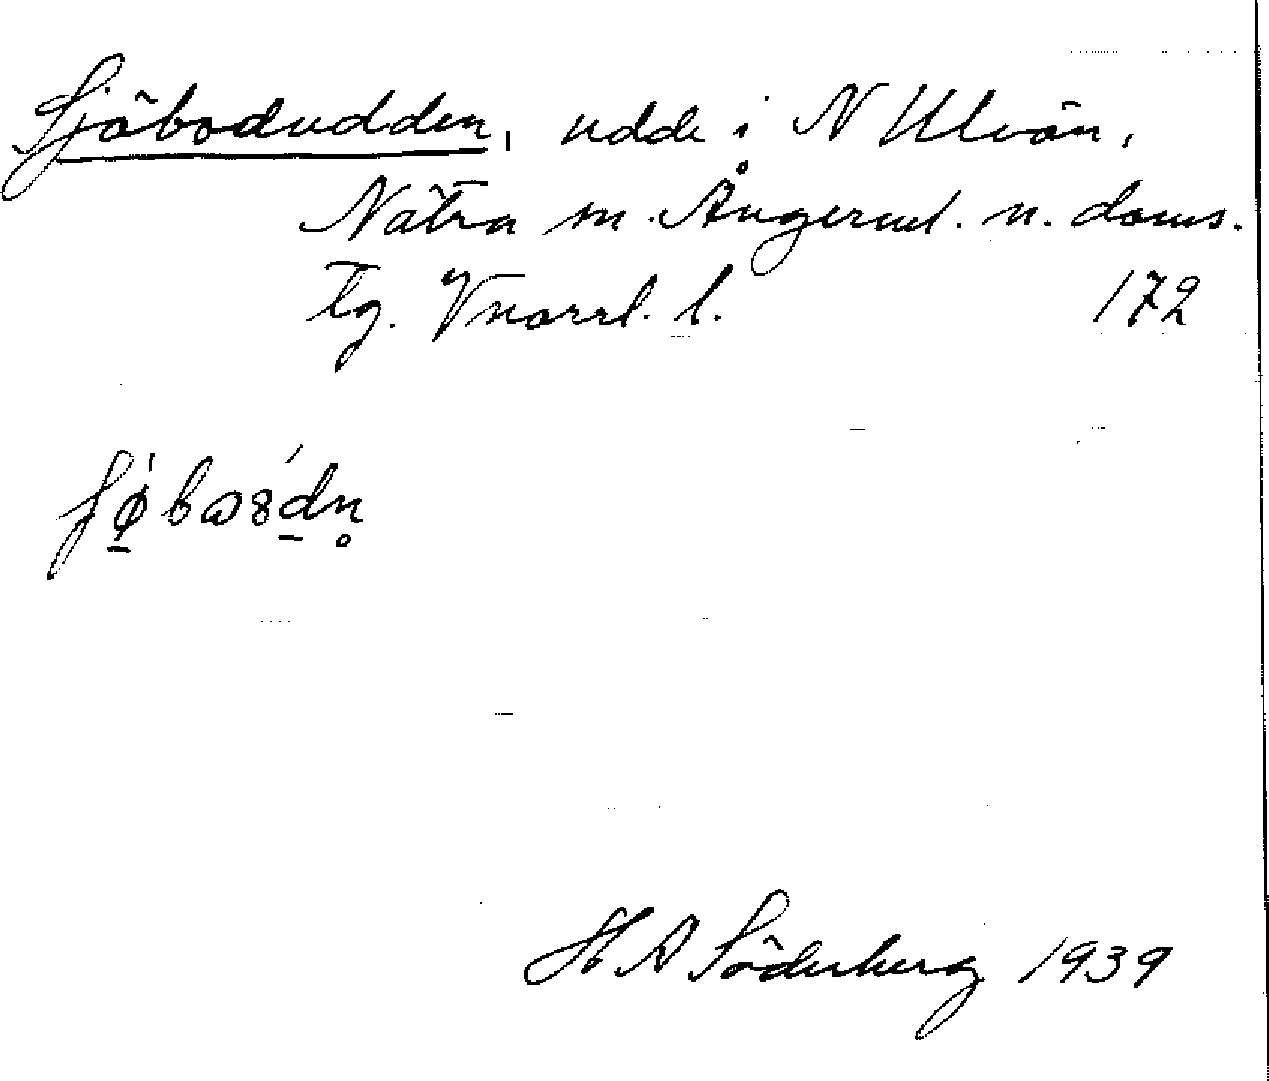 Sjöbodudden, udde i N Ulvön,
Nätra sn. Ångerml. n. doms.
tg. Vnorrl. l. 172
H A Söderberg 1939